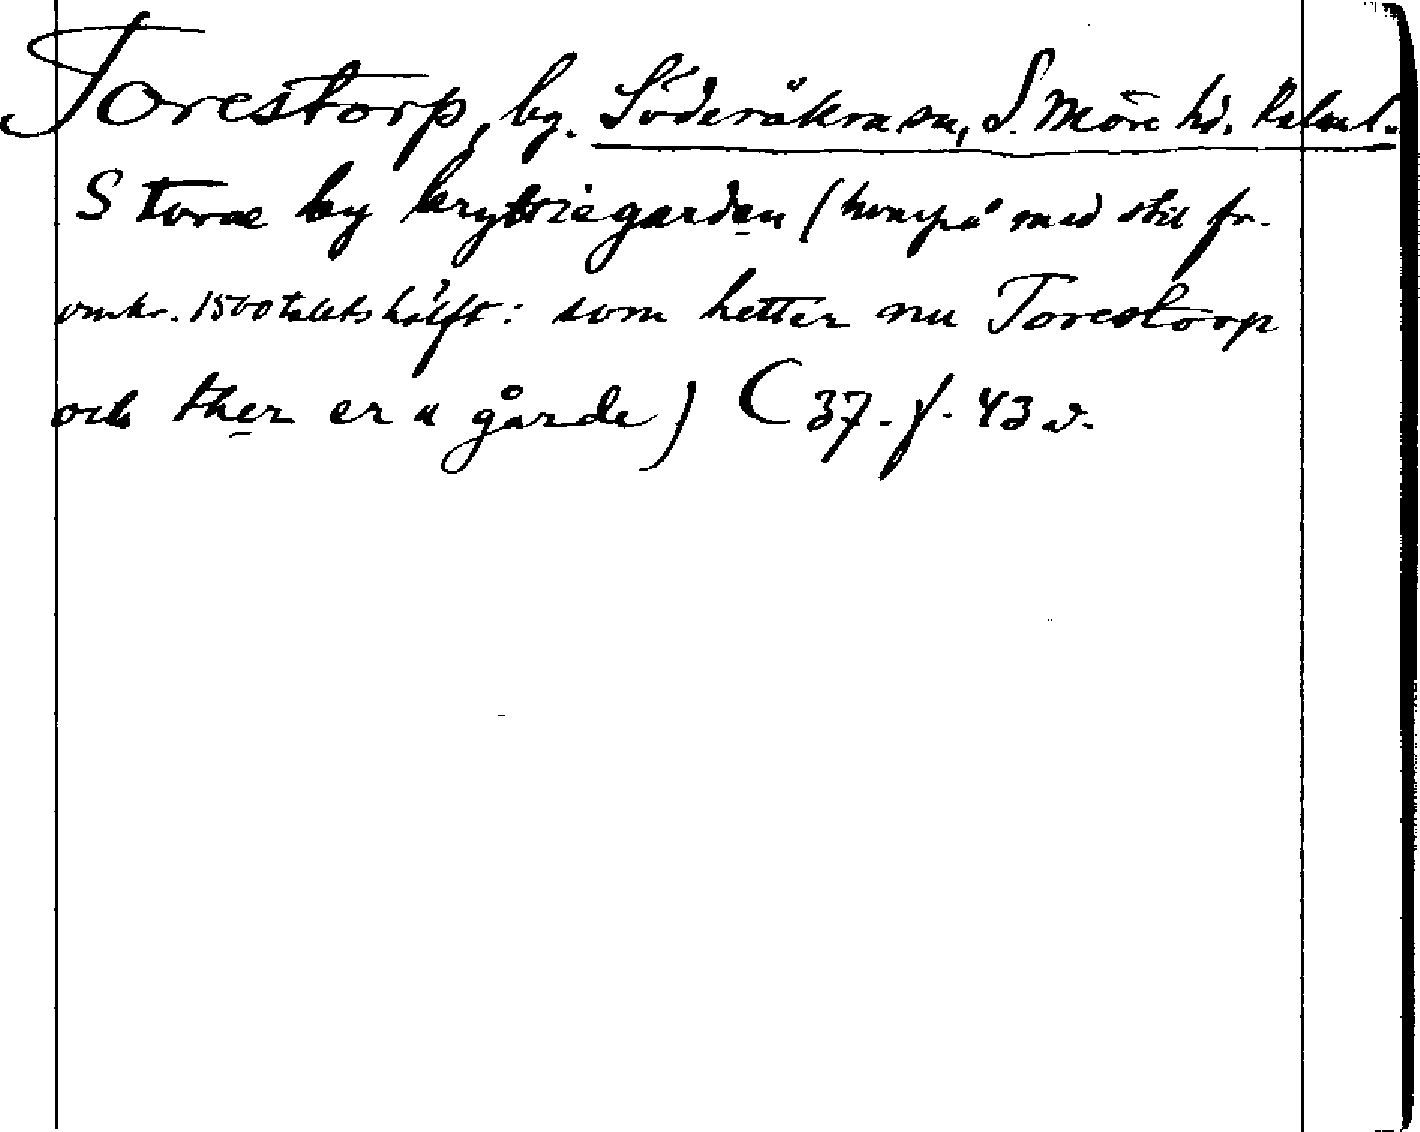 Torestorp, by. Söderåkra sn, S. Möre hd. Kalm l.
S torae by krybbiegarden (hvarpå med stil fr.
omkr. 1500 talets hälft: som hetter nu Torestorp
och ther er u gårde) C 37. f. 43 v.